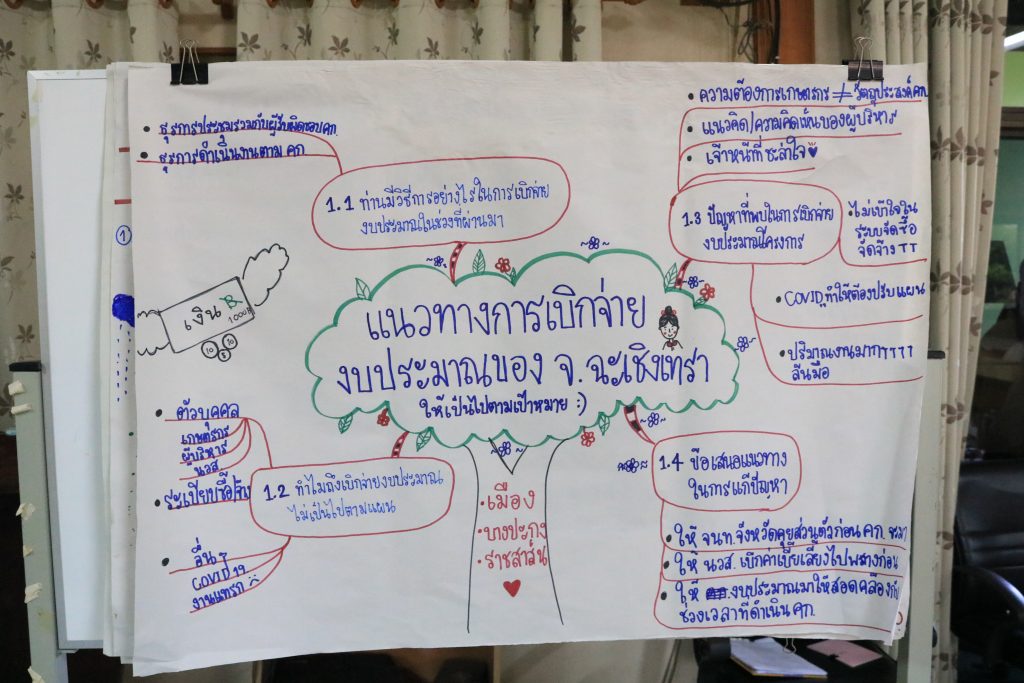 • ธุรการประชุมร่วมกับผู้รับผิดชอบ คก.
• ธุรการดำเนินงานตาม คก.
1.1 ท่านมีวิธีการอย่างไรในการเบิกจ่าย
งบประมาณในช่วงที่ผ่านมา
• ความต้องการเกษตรกร ≠ วัตถุประสงค์ คก.
• แนวคิด/ความคิดเห็นของผู้บริหาร
• เจ้าหน้าที่ชะล่าใจ
1.3 ปัญหาที่พบในการเบิกจ่าย
งบประมาณ/โครงการ
• ไม่เข้าใจใน
ระบบจัดซื้อ
จัดจ้าง TT
• COVID ทำให้ต้องปรับแผน
• ปริมาณงานมาก TTTT
ล้นมือ
1
เงิน ฿
1000฿
10 5 10
แนวทางการเบิกจ่าย
งบประมาณของ จ.ฉะเชิงเทรา
ให้เป็นไปตามเป้าหมาย :)
• ตัวบุคคล
เกษตรกร
ผู้บริหาร
นวส.
• ระเบียบซื้อ/จ้าง
• อื่น ๆ
COVID 19
งานแทรก
1.2 ทำไมถึงเบิกจ่ายงบประมาณ
ไม่เป็นไปตามแผน
• เมือง
• บางปะกง
• ราชสาส์น
1.4 ข้อเสนอแนวทาง
ในการแก้ปัญหา
• ให้ จนท.จังหวัดคุยส่วนตัวก่อน คก. จะมา
• ให้ นวส. เบิกค่าเบี้ยเลี้ยงไปพลางก่อน
• ให้ งบประมาณมาให้สอดคล้องกับ
ช่วงเวลาที่ดำเนิน คก.